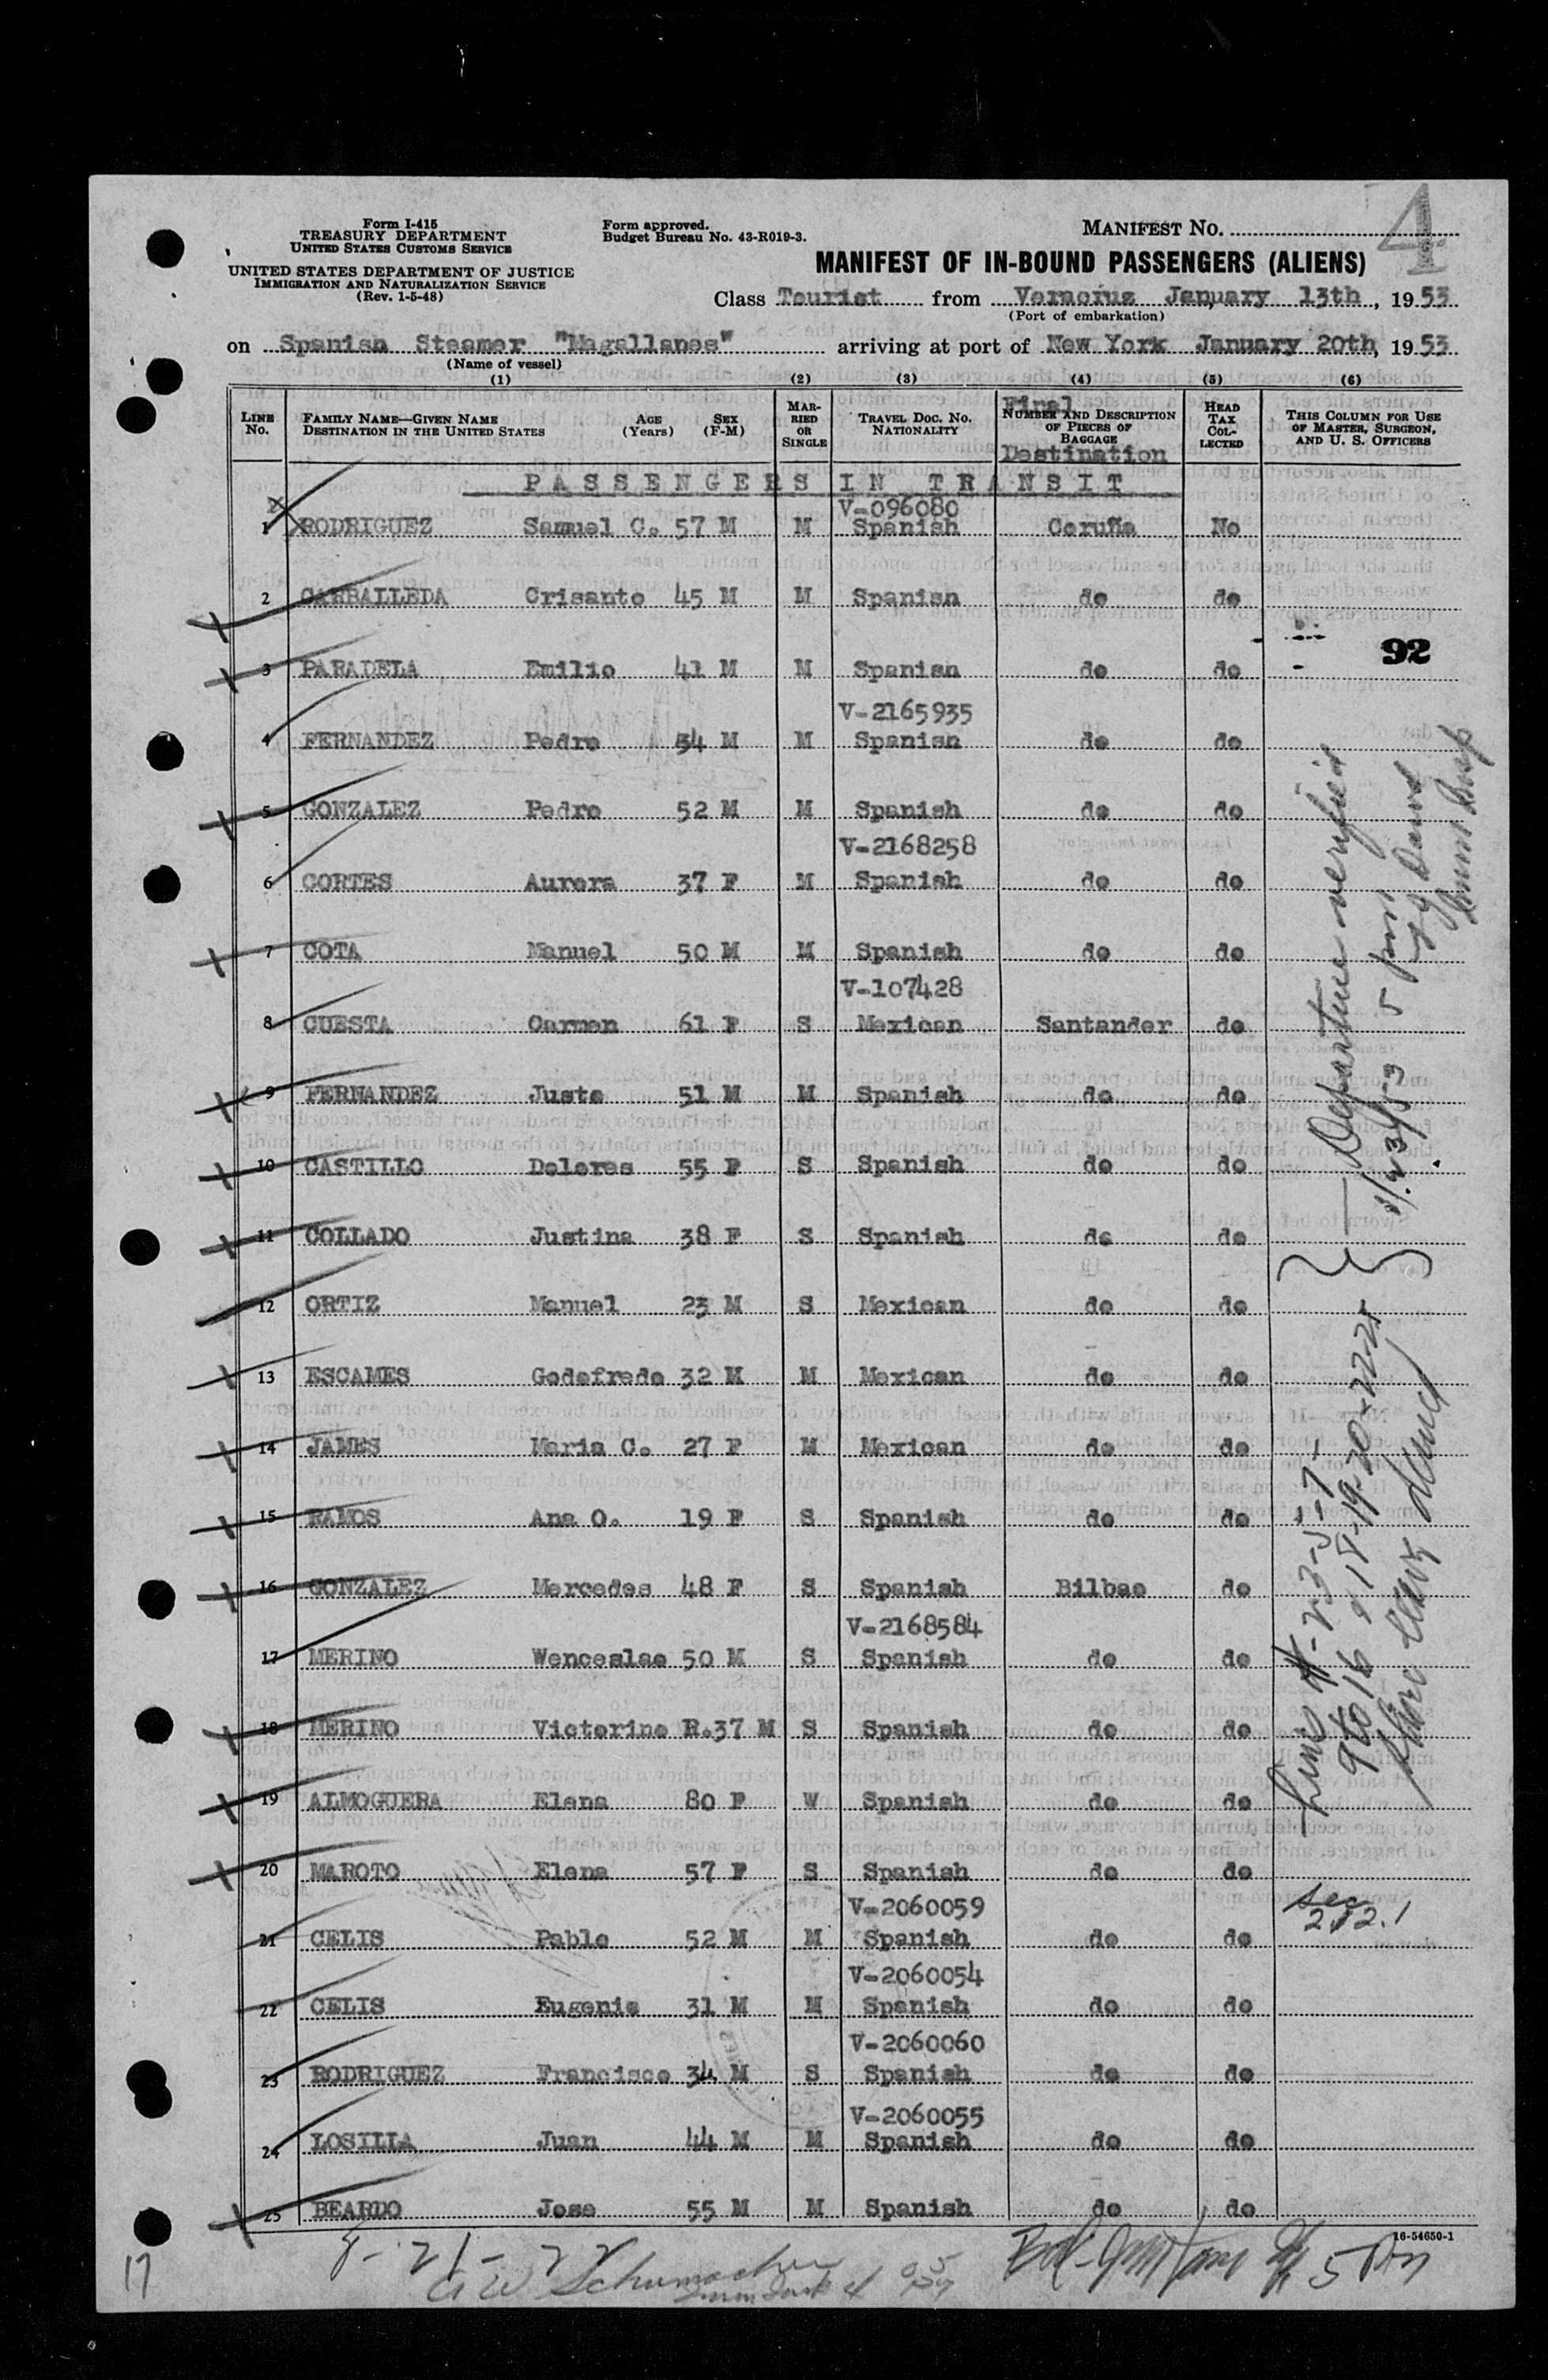 4
Form I-415
TREASURY DEPARTMENT
UNITED STATES CUSTOMS SERVICE
UNITED STATES DEPARTMENT OF JUSTICE
IMMIGRATION AND NATURALIZATION SERVICE
(Rev. 1-5-48)
Form approved.
Budget Bureau No. 43-R019-3.
MANIFEST No.
MANIFEST OF IN-BOUND PASSENGERS (ALIENS)
Class Tourist from Veracruz January 13th, 1953
(Port of embarkation)
on Spanish Steamer "Magallanes" arriving at port of New York January 20th, 1953
(Name of vessel)
(1) (2) (3) (4) (5) (6)
LINE No.
FAMILY NAME—GIVEN NAME
DESTINATION IN THE UNITED STATES
AGE (Years)
SEX (F-M)
MARRIED OR SINGLE
TRAVEL DOC. No. NATIONALITY
Final
NUMBER AND DESCRIPTION OF PIECES OF BAGGAGE
Destination
HEAD TAX COLLECTED
THIS COLUMN FOR USE OF MASTER, SURGEON, AND U. S. OFFICERS
PASSENGERS IN TRANSIT
V-096080
1 RODRIGUEZ Samuel C. 57 M M Spanish Coruña No
2 CARBALLEDA Crisanto 45 M M Spanish do do
92
3 PARADELA Emilio 41 M M Spanish do do
V-2165935
4 FERNANDEZ Pedro 54 M M Spanish do do
5 GONZALEZ Pedro 52 M M Spanish do do
V-2168258
6 CORTES Aurora 37 F M Spanish do do
7 COTA Manuel 50 M M Spanish do do
V-107428
8 CUESTA Carmen 61 F S Mexican Santander do
9 FERNANDEZ Justo 51 M M Spanish do do
10 CASTILLO Dolores 55 F S Spanish do do
11 COLLADO Justina 38 F S Spanish do do
12 ORTIZ Manuel 23 M S Mexican do do
13 ESCAMES Godofredo 32 M M Mexican do do
14 JAMES Maria C. 27 F M Mexican do do
15 RAMOS Ana O. 19 F S Spanish do do
16 GONZALEZ Mercedes 48 F S Spanish Bilbao do
V-2168584
17 MERINO Wenceslao 50 M S Spanish do do
18 MERINO Victorino R. 37 M S Spanish do do
19 ALMOGUERA Elena 80 F W Spanish do do
20 MAROTO Elena 57 F S Spanish do do
V-2060059
21 CELIS Pablo 52 M M Spanish do do
V-2060054
22 CELIS Eugenio 31 M M Spanish do do
V-2060060
23 RODRIGUEZ Francisco 34 M S Spanish do do
V-2060055
24 LOSILLA Juan 44 M M Spanish do do
25 BEARDO Jose 55 M M Spanish do do
Departure verified
1/23/53 5 pm
Sec
212.1
16-54650-1
8-21-22
Schumacher
17